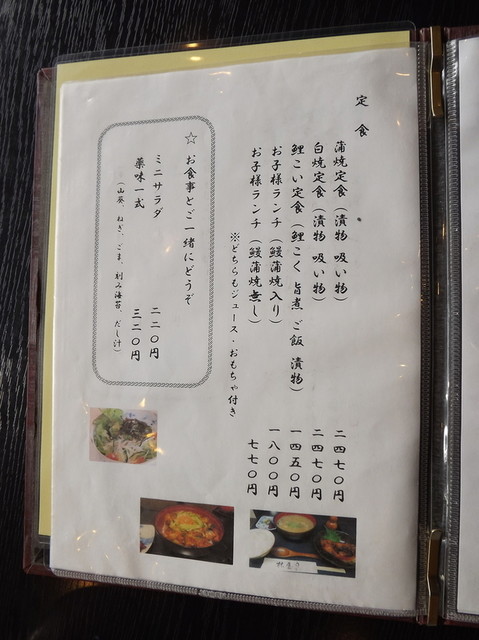 定食
蒲焼定食(漬物 吸い物) 二四七〇円
白焼定食(漬物 吸い物) 二四七〇円
鯉こい定食(鯉こく 旨煮 ご飯 漬物) 一四五〇円
お子様ランチ(鰻蒲焼入り) 一八〇〇円
お子様ランチ(鰻蒲焼無し) 七七〇円
※どちらもジュース・おもちゃ付き
☆ お食事とご一緒にどうぞ
ミニサラダ 二二〇円
薬味一式 三二〇円
(山葵、ねぎ、ごま、刻み海苔、だし汁)